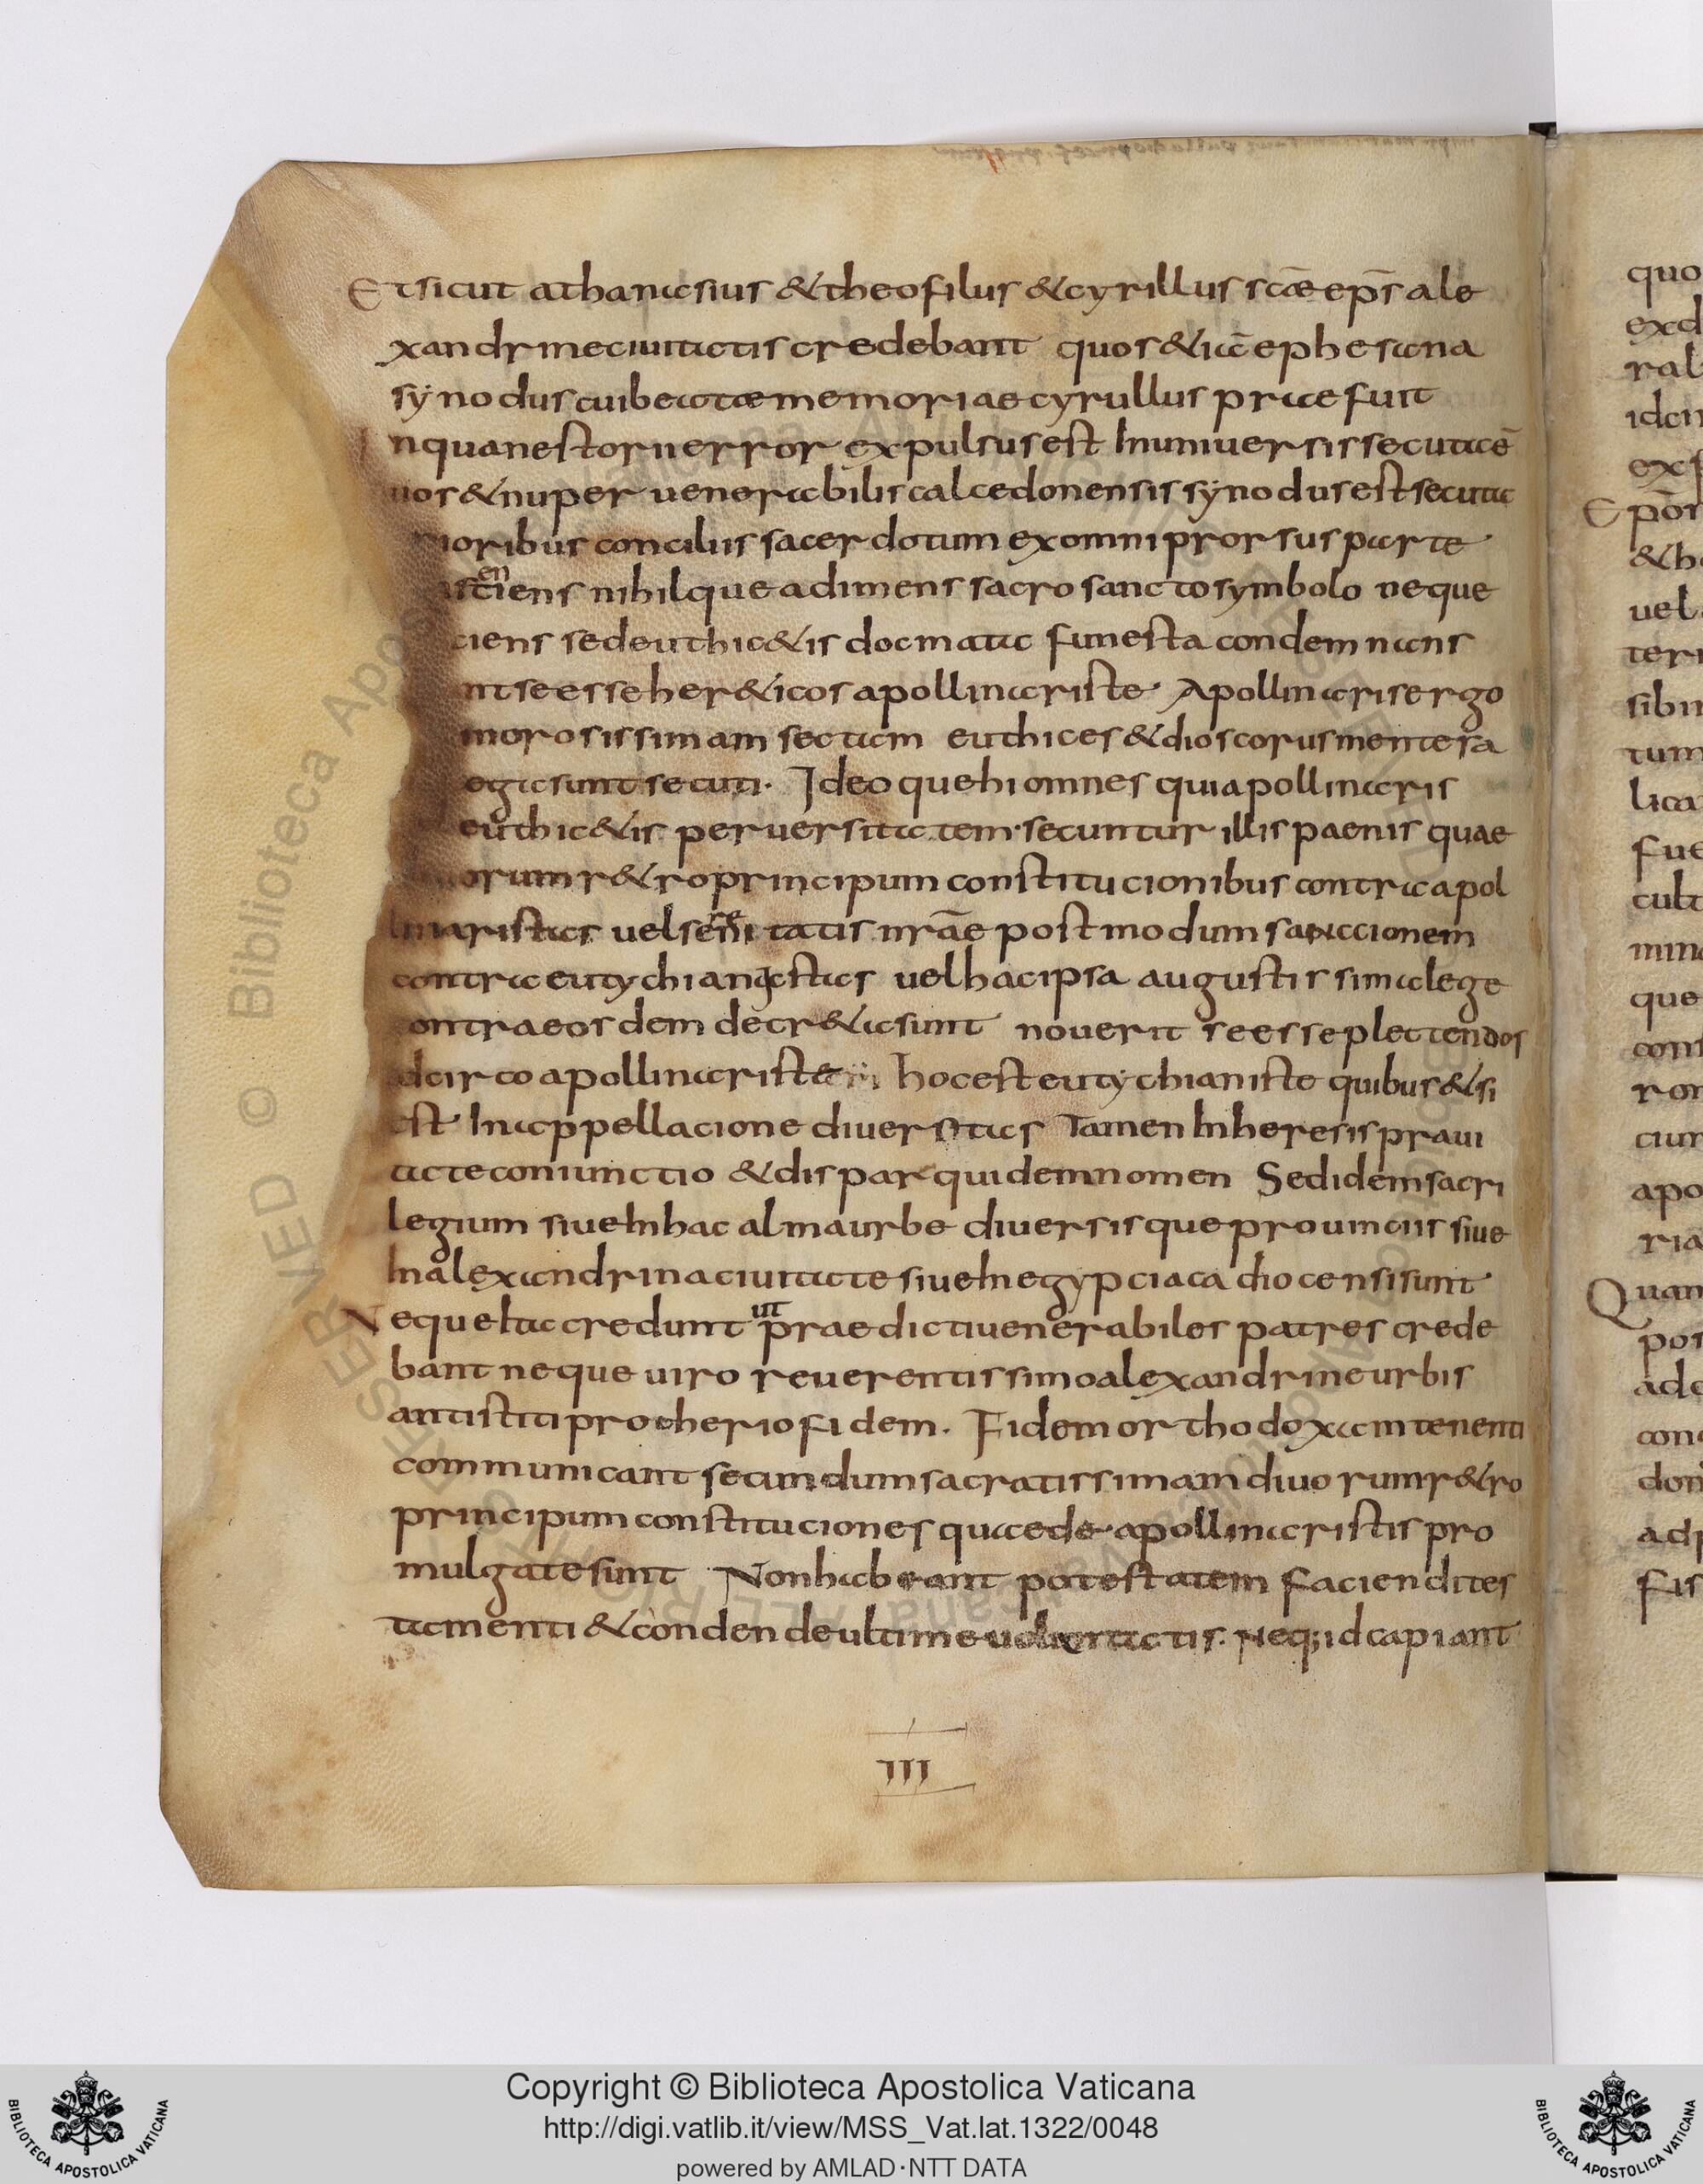 Et sicut athanasius & theofilus & cyrillus scāe ep̄s ale
xandrine ciuitatis credebant quos & iā ephesana
synodus cui beatae memoriae cyrullus praefuit
In qua nestorii error expulsus est In uniuersis secuta ē
uos & nuper uenerabilis calcedonensis synodus est secuta
rioribus conciliis sacerdotum ex omni prorsus parte
nihilque adimens sacrosancto symbolo neque
ciens sed euthic&is docmata funesta condemnans
nt se esse her&icos apollinariste. Apollinaris ergo
morosissimam sectam euthices & dioscorus mente sa
oga sunt secuti. Ideoque hi omnes qui apollinaris
euthic&is peruersitatem secuntur illis paenis quae
orum r&ro principum constitucionibus contra apol
linaristas uel sereni tatis nrāe postmodum sanccionem
contra eutychianistas uel hac ipsa augustissima lege
contra eosdem decr&a sunt nouerit se esse plectendos
adcirco apollinariste hoc est eutychianiste quibus & si
est In appellacione diuersitas Tamen In heresis praui
tate coniunctio & dispar quidem nomen Sed idem sacri
legium siue In hac alma urbe diuersisque prouinciis siue
In alexandrina ciuitate siue In egypciaca diocensi sunt
Neque Ita credunt ut praedicti uenerabiles patres crede
bant neque uiro reuerentissimo alexandrine urbis
antistiti protherio fidem. Fidem orthodoxam tenenti
communicant secundum sacratissimam diuorum r&ro
principum constituciones quae de apollinaristis pro
mulgate sunt Non habeant potestatem faciendi tes
tamenti & conden de ultime uoluntatis. Neq; id capiant
III
quo
ral
Epōr
&h
uel
sibi
tum
lica
fue
cult
que
ror
apo
ria
Quan
pos
adc
fis
Copyright © Biblioteca Apostolica Vaticana
http://digi.vatlib.it/view/MSS_Vat.lat.1322/0048
powered by AMLAD·NTT DATA
BIBLIOTECA APOSTOLICA VATICANA
BIBLIOTECA APOSTOLICA VATICANA